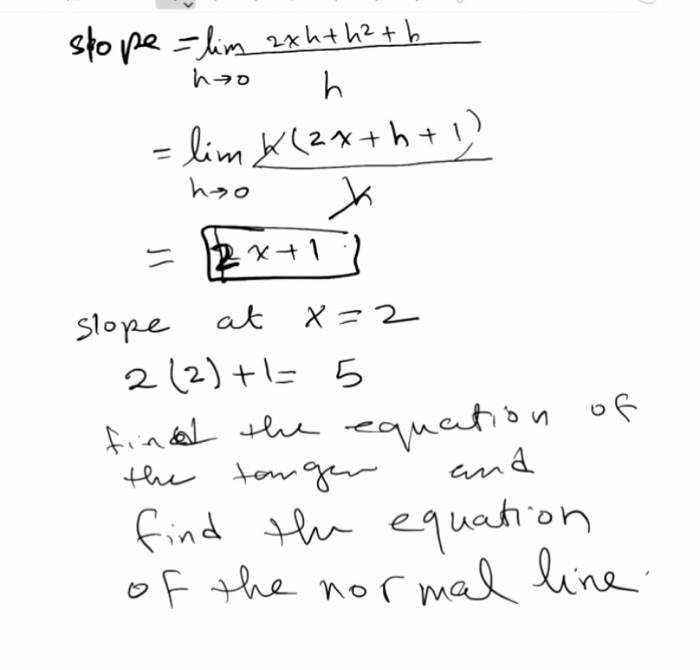 slope = lim 2xh+h²+h
h→0 h
= lim h(2x+h+1)
h→0 h
= 2x+1
slope at x=2
2(2)+1= 5
find the equation of
the tangen and
find the equation
of the normal line.